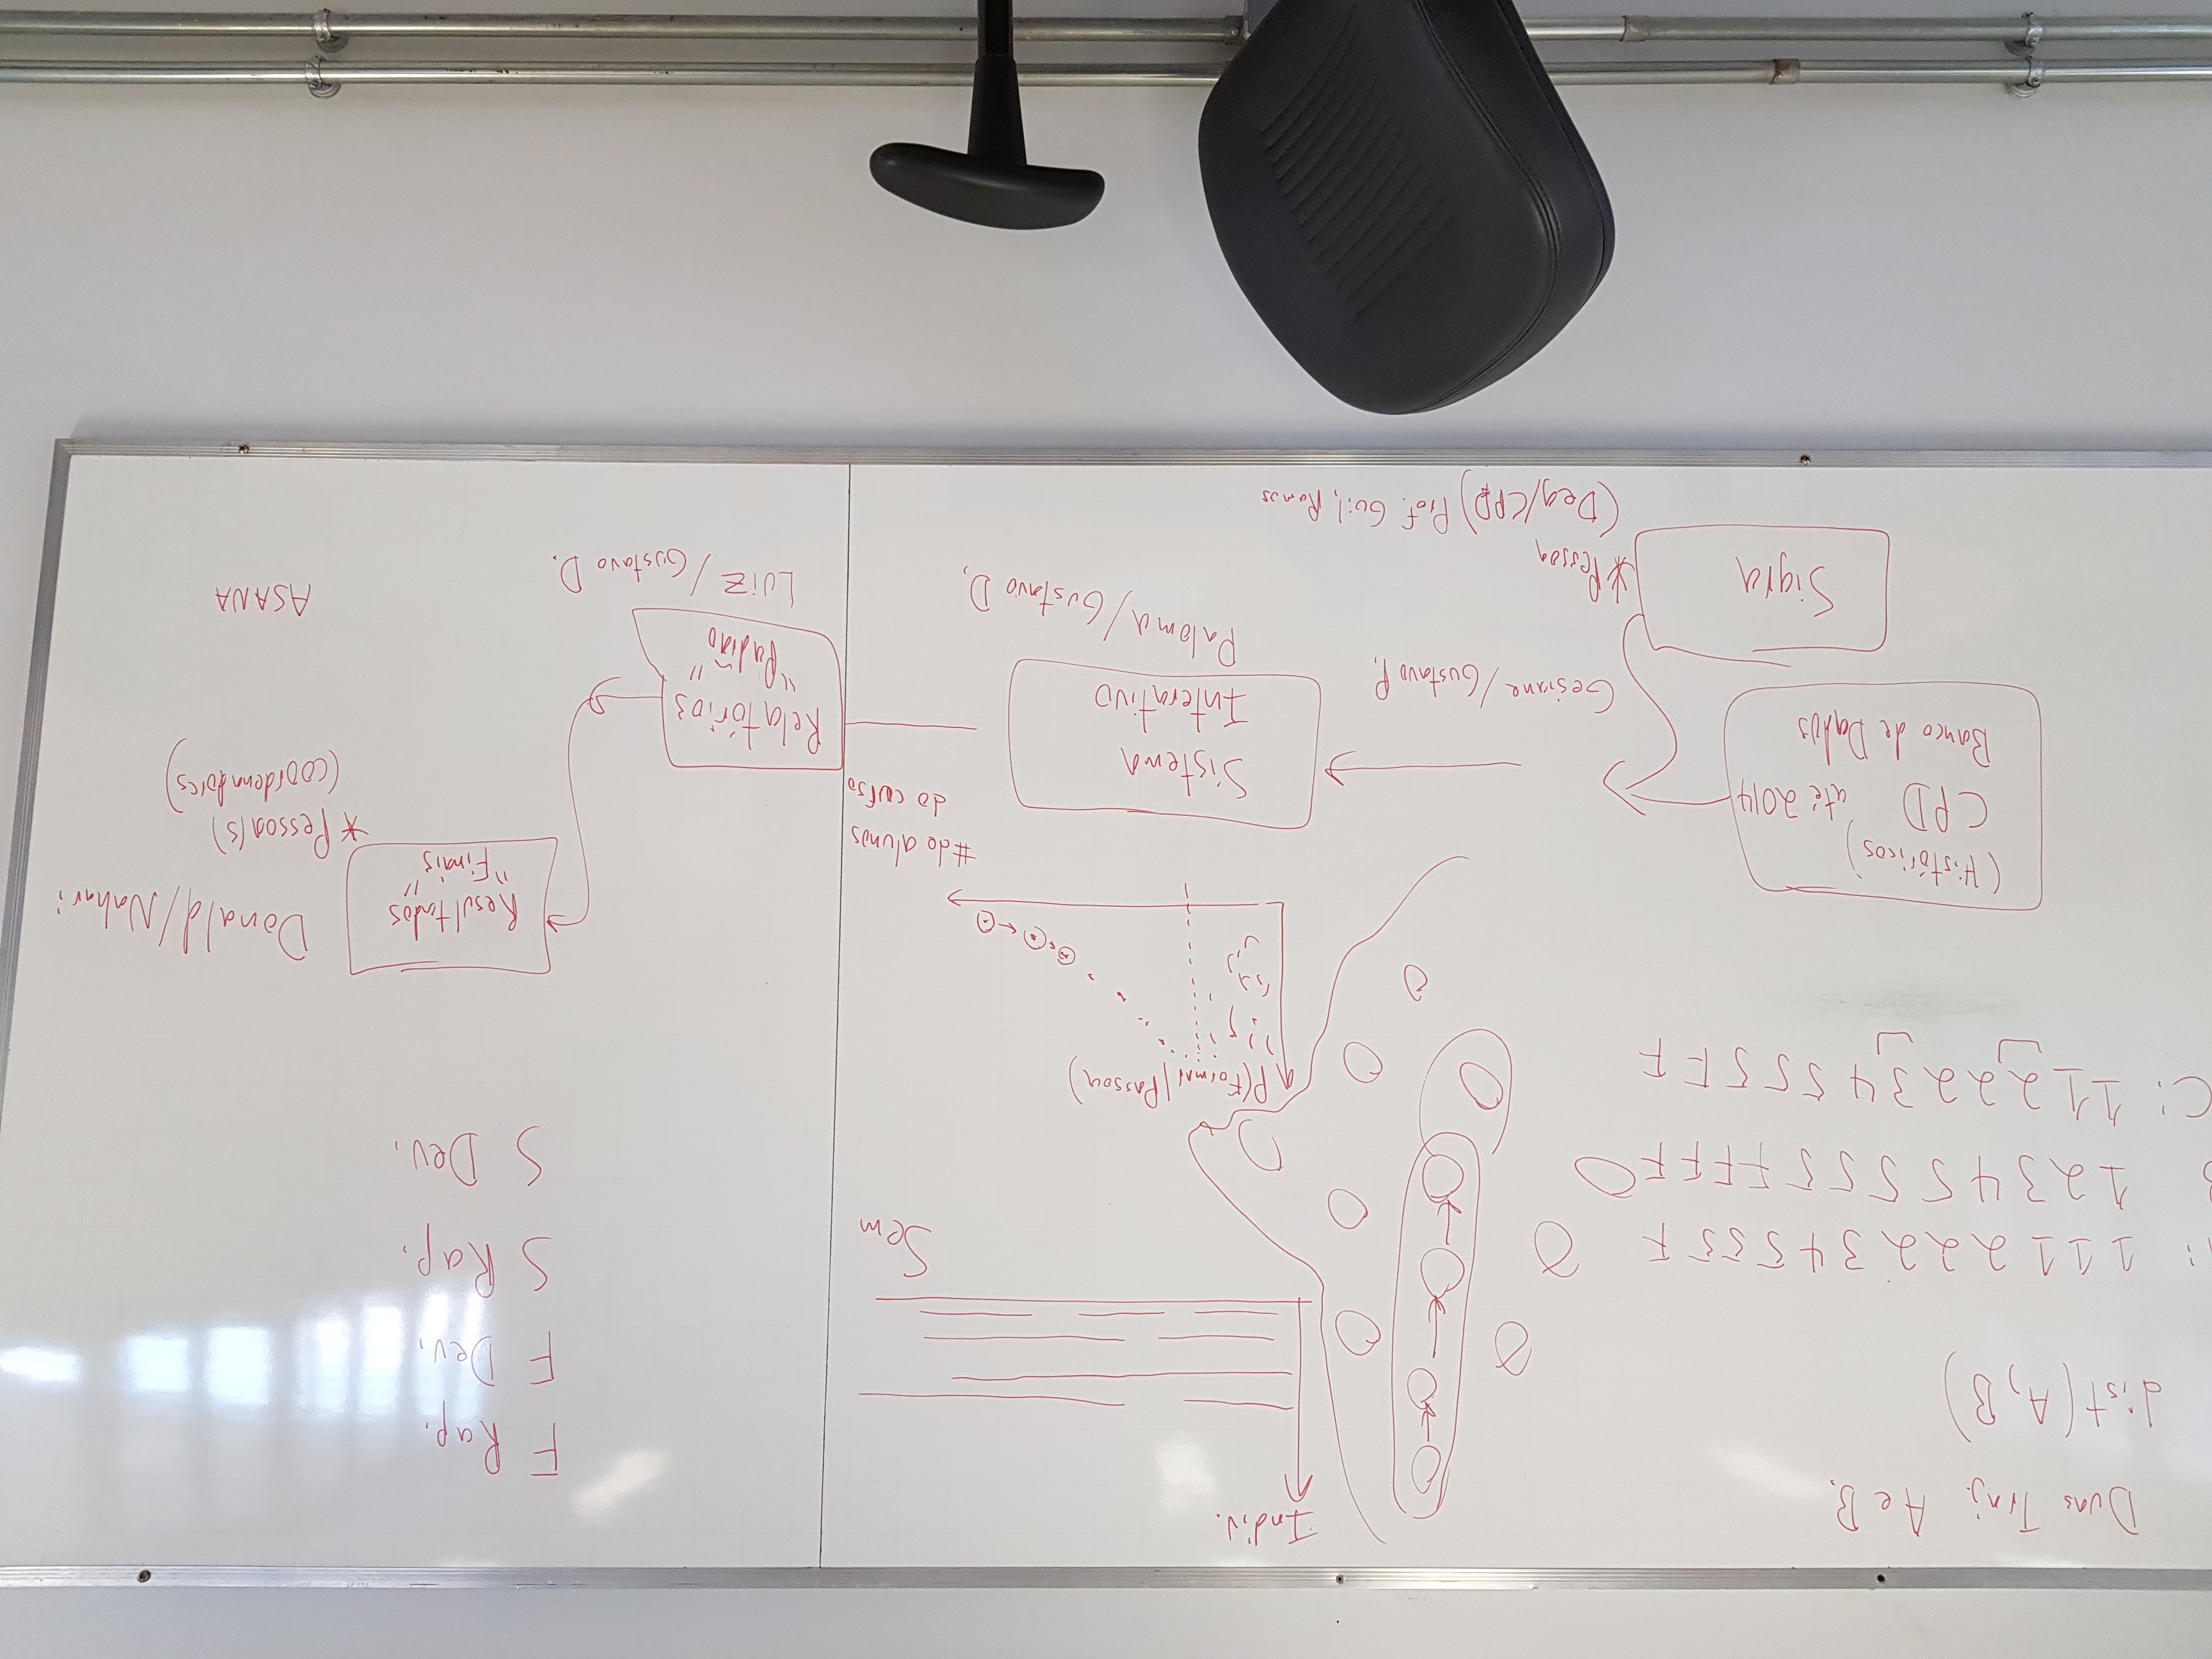 Duas Traj. A e B.
dist(A, B)
: 1 1 1 2 2 2 3 4 5 5 5 F
B 1 2 3 4 5 5 5 5 F F F F
C: 1 1 2 2 2 3 4 5 5 5 F F
Indiv.
Sem
P(Formar|Passou)
# de alunos
do curso
F Rap.
F Dev.
S Rap.
S Dev.
(Históricos)
CPD até 2014
Banco de Dados
Sigra
*Pessoa
(Deg/CPD) Prof. Guil. Ramos
Gesiane/Gustavo P.
Sistema
Interativo
Paloma/Gustavo D.
Relatórios
"Padrão"
LUIZ/Gustavo D.
Resultados
"Finais"
Donald/Nahari
*Pessoa(s)
(coordenadores)
ASANA